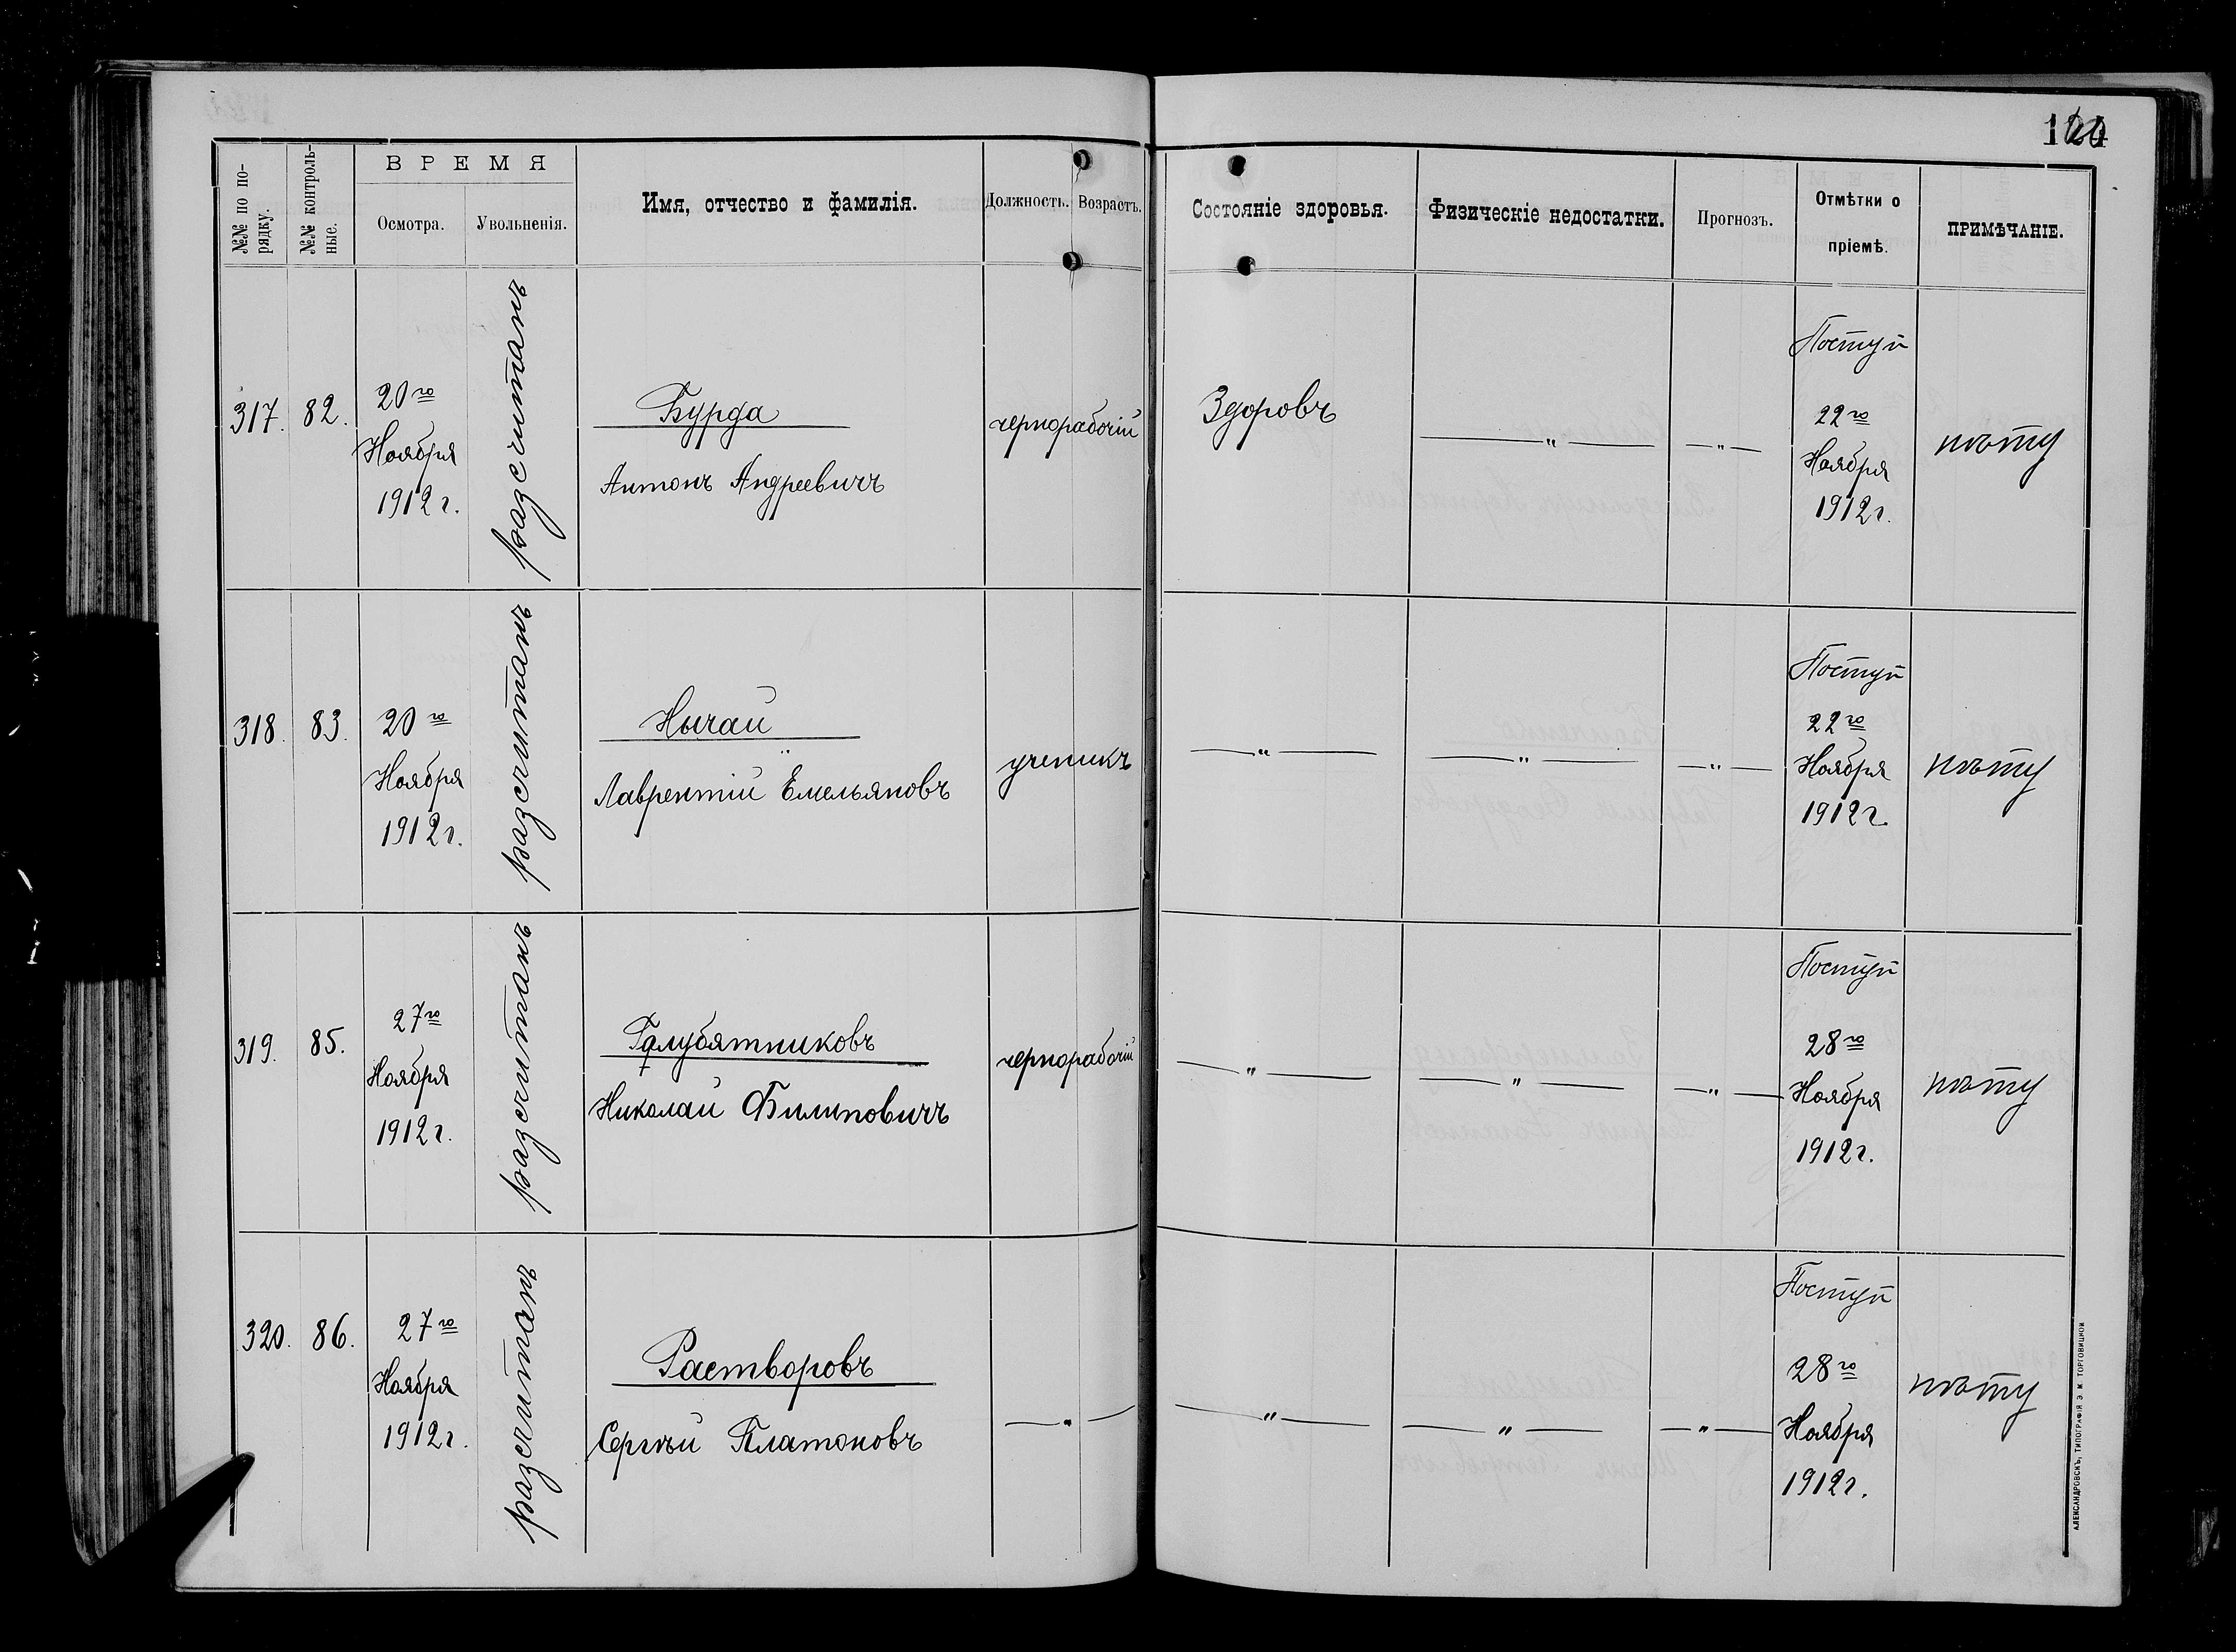 ВРЕМЯ
№№ по по-
рядку.
№№ контроль-
ные.
Осмотра.
Увольненія.
Имя, отчество и фамилія.
Должность.
Возрастъ.
Состояніе здоровья.
Физическіе недостатки.
Прогнозъ.
Отмѣтки о
пріемѣ.
ПРИМѢЧАНІЕ.
317.
82.
20го
Ноября
1912 г.
разсчитанъ
Бурда
Антонъ Андреевичъ
чернорабочій
Здоровъ
— " —
— " —
Поступ
22го
Ноября
1912 г.
318.
83.
20го
Ноября
1912 г.
разсчитанъ
Нычай
Лаврентій Емельяновъ
ученикъ
— " —
— " —
— " —
Поступ
22го
Ноября
1912 г.
319.
85.
27го
Ноября
1912 г.
разсчитанъ
Голубятниковъ
Николай Филиповичъ
чернорабочій
— " —
— " —
— " —
Поступ
28го
Ноября
1912 г.
320.
86.
27го
Ноября
1912 г.
разсчитанъ
Растворовъ
Сергѣй Платоновъ
— " —
— " —
— " —
— " —
Поступ
28го
Ноября
1912 г.
АЛЕКСАНДРОВСКЪ, ТИПОГРАФІЯ Э. М. ТОРГОВИЦКОЙ